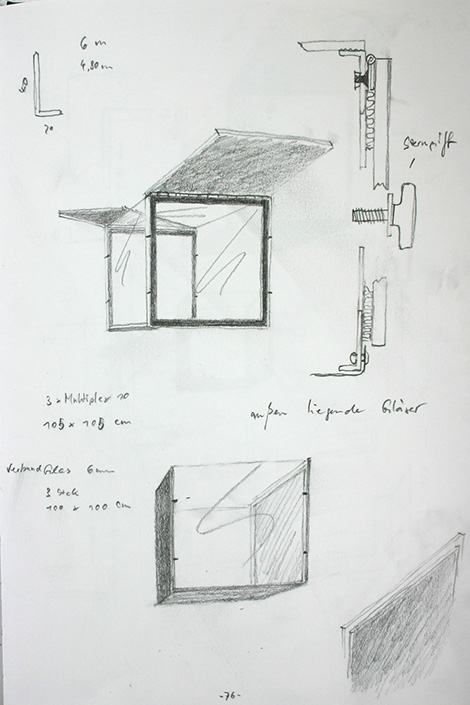 6 m
4,80 m
20
Sterngriff
3 x Multiplex 20
105 x 105 cm
außen liegende Gläser
Verbund Glas 6mm
3 Stck
100 x 100 cm
-76-